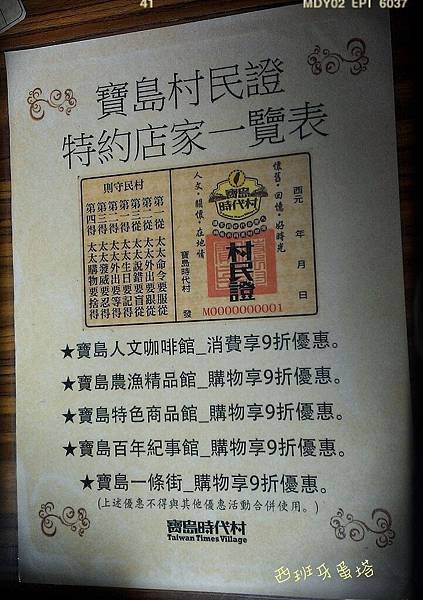 41
MDY02 EPT 6037
寶島村民證
特約店家一覽表
村民守則
第一從 太太外出要跟從
第二從 太太命令要服從
第三從 太太說錯要盲從
第一得 太太生日要記得
第二得 太太外出要等得
第三得 太太發威要忍得
第四得 太太購物要捨得
懷舊‧回憶‧好時光
人文‧關懷‧在地情
寶島時代村
村民證
M0000000001
西元 年 月 日
寶島時代村 發
★寶島人文咖啡館_消費享9折優惠。
★寶島農漁精品館_購物享9折優惠。
★寶島特色商品館_購物享9折優惠。
★寶島百年紀事館_購物享9折優惠。
★寶島一條街_購物享9折優惠。
(上述優惠不得與其他優惠活動合併使用。)
寶島時代村
Taiwan Times Village
西班牙蛋塔